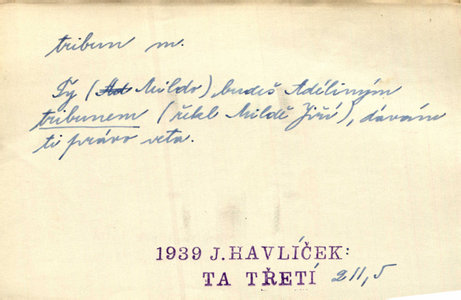 tribun m.
Ty (Mildo), budeš Adéliným
tribunem (řekl Mildě Jiří), dávám
ti právo veta.
1939 J. HAVLÍČEK:
TA TŘETÍ 211,5